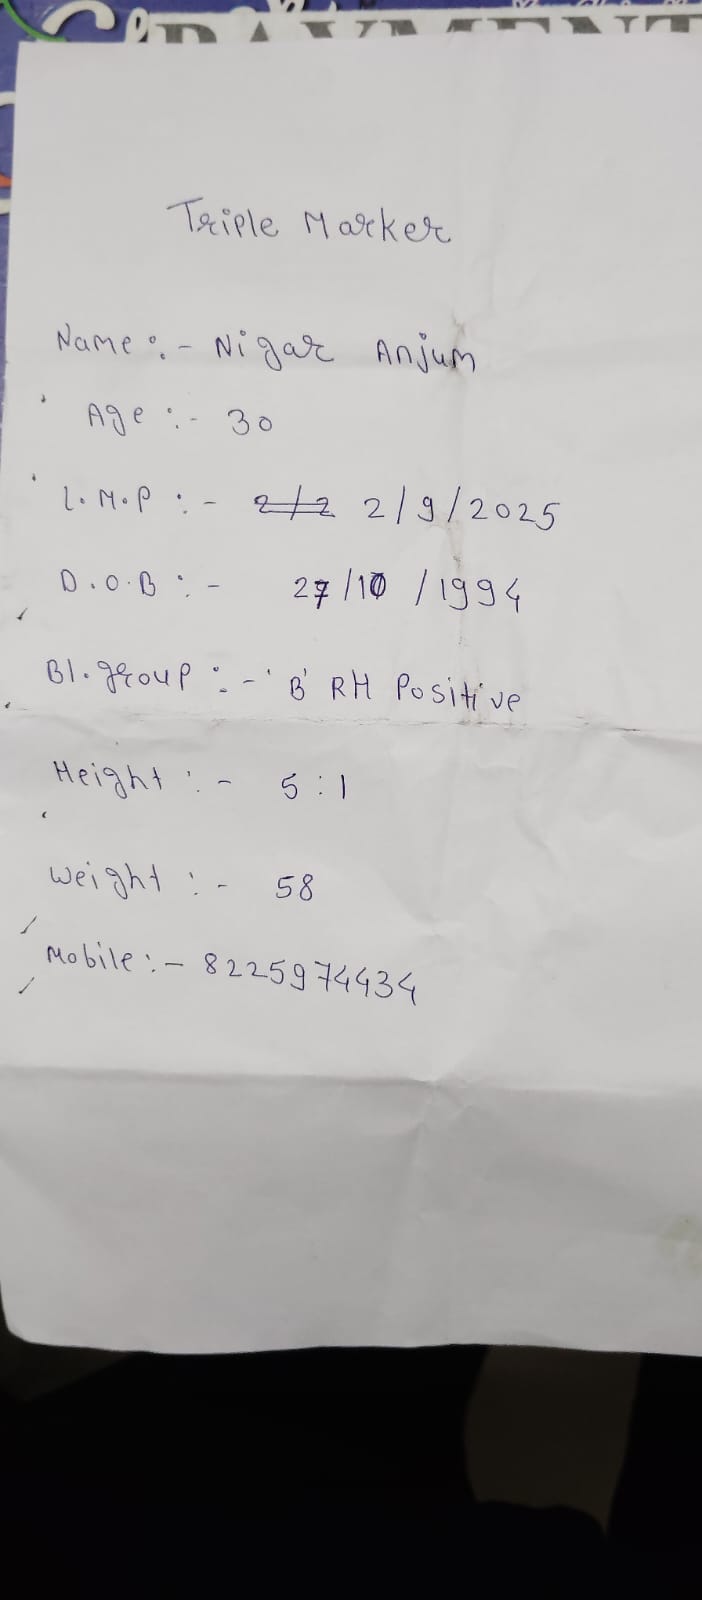 PAYMENT
Triple Marker
Name :- Nigar Anjum
Age :- 30
L.M.P :- 2/2 2/9/2025
D.O.B :- 27/10/1994
Bl. group :- 'B' RH Positive
Height :- 5:1
Weight :- 58
Mobile :- 8225974434